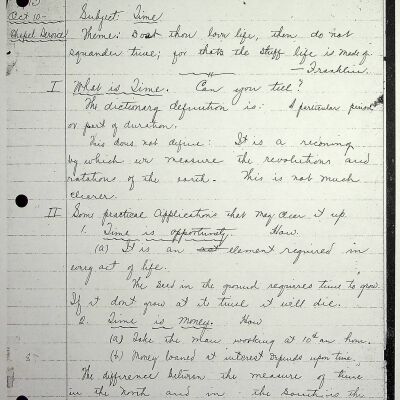 Oct 10 - Subject: Time
Chapel Service Theme: Dost thou love life, then do not
squander time; for thats the stuff life is made of.
- Franklin.
I What is Time. Can you tell?
The dictionary definition is: A particular period
or part of duration.
This does not define: It is a reconing
by which we measure the revolutions and
rotations of the earth. This is not much
clearer.
II Some practical Applications that may clear it up.
1. Time is opportunity. How.
(a) It is an element required in
every act of life.
The seed in the ground requires time to grow.
If it dont grow at its time it will die.
2. Time is Money. How
(a) Take the man working at 10¢ an hour.
(b) Money loaned at interest depends upon time.
The difference between the measure of time
in the North and in the South is the